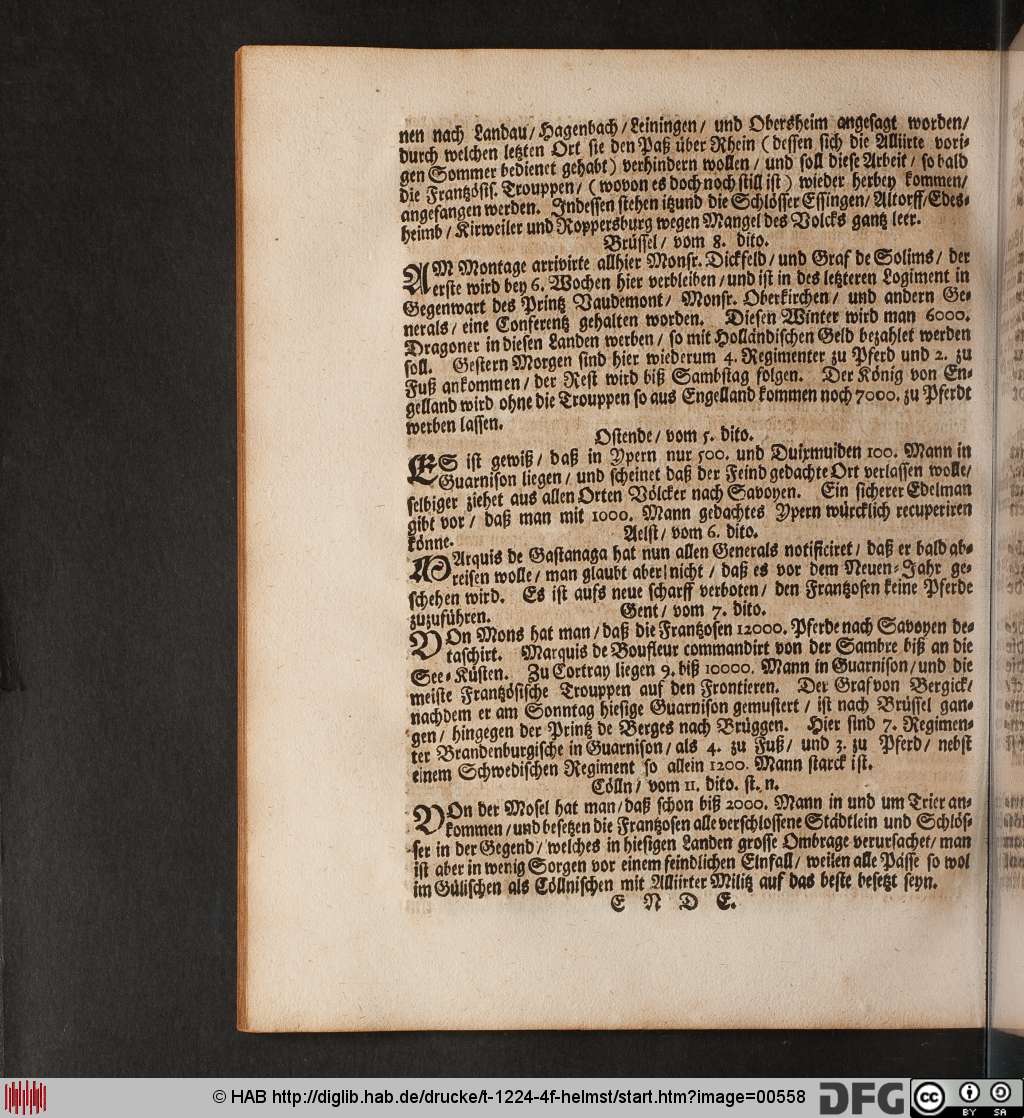 nen nach Landau/ Hagenbach/ Leiningen/ und Obersheim angesagt worden/
durch welchen letzten Ort sie den Paß über Rhein (dessen sich die Alliirte vori-
gen Sommer bedienet gehabt) verhindern wollen/ und soll diese Arbeit/ so bald
die Frantzösis. Trouppen/ (wovon es doch noch still ist) wieder herbey kommen/
angefangen werden. Indessen stehen itzund die Schlösser Essingen/ Altorff/ Edes-
heimb/ Kirweiler und Roppersburg wegen Mangel des Volcks gantz leer.
Brüssel/ vom 8. dito.
AM Montage arrivirte allhier Monsr. Dickfeld/ und Graf de Solims/ der
erste wird bey 6. Wochen hier verbleiben/ und ist in des letzteren Logiment in
Gegenwart des Printz Vaudemont/ Monsr. Oberkirchen/ und andern Ge-
nerals/ eine Conferentz gehalten worden. Diesen Winter wird man 6000.
Dragoner in diesen Landen werben/ so mit Holländischen Geld bezahlet werden
soll. Gestern Morgen sind hier wiederum 4. Regimenter zu Pferd und 2. zu
Fuß ankommen/ der Rest wird biß Sambstag folgen. Der König von En-
gelland wird ohne die Trouppen so aus Engelland kommen noch 7000. zu Pferdt
werben lassen.
Ostende/ vom 5. dito.
ES ist gewiß/ daß in Ypern nur 500. und Duixmuiden 100. Mann in
Guarnison liegen/ und scheinet daß der Feind gedachte Ort verlassen wolle/
selbiger ziehet aus allen Orten Völcker nach Savoyen. Ein sicherer Edelman
gibt vor/ daß man mit 1000. Mann gedachtes Ypern würcklich recuperiren
könne.
Aelst/ vom 6. dito.
MArquis de Gastanaga hat nun allen Generals notificiret/ daß er bald ab-
reisen wolle/ man glaubt aber nicht/ daß es vor dem Neuen-Jahr ge-
schehen wird. Es ist aufs neue scharff verboten/ den Frantzosen keine Pferde
zuzuführen.
Gent/ vom 7. dito.
VOn Mons hat man/ daß die Frantzosen 12000. Pferde nach Savoyen de-
taschirt. Marquis de Boufleur commandirt von der Sambre biß an die
See-Küsten. Zu Cortray liegen 9. biß 10000. Mann in Guarnison/ und die
meiste Frantzösische Trouppen auf den Frontieren. Der Graf von Bergick/
nachdem er am Sonntag hiesige Guarnison gemustert/ ist nach Brüssel gan-
gen/ hingegen der Printz de Berges nach Brüggen. Hier sind 7. Regimen-
ter Brandenburgische in Guarnison/ als 4. zu Fuß/ und 3. zu Pferd/ nebst
einem Schwedischen Regiment so allein 1200. Mann starck ist.
Cölln/ vom 11. dito. st. n.
VOn der Mosel hat man/ daß schon biß 2000. Mann in und um Trier an-
kommen/ und besetzen die Frantzosen alle verschlossene Städtlein und Schlös-
ser in der Gegend/ welches in hiesigen Landen grosse Ombrage verursachet/ man
ist aber in wenig Sorgen vor einem feindlichen Einfall/ weilen alle Pässe so wol
im Gülischen als Cöllnischen mit Alliirter Militz auf das beste besetzt seyn.
E N D E.
© HAB http://diglib.hab.de/drucke/t-1224-4f-helmst/start.htm?image=00558
DFG
cc
BY SA